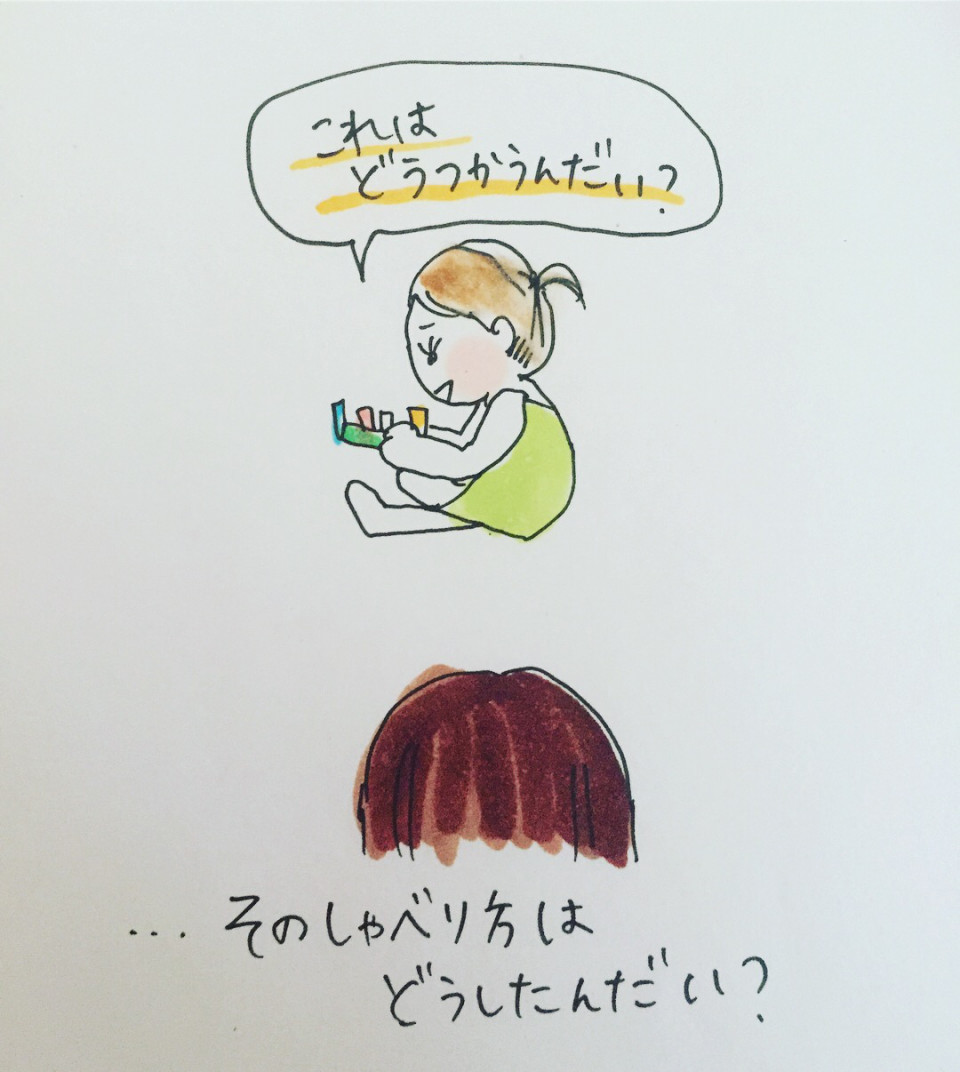 これは
どうつかうんだい?
... そのしゃべり方は
どうしたんだい?